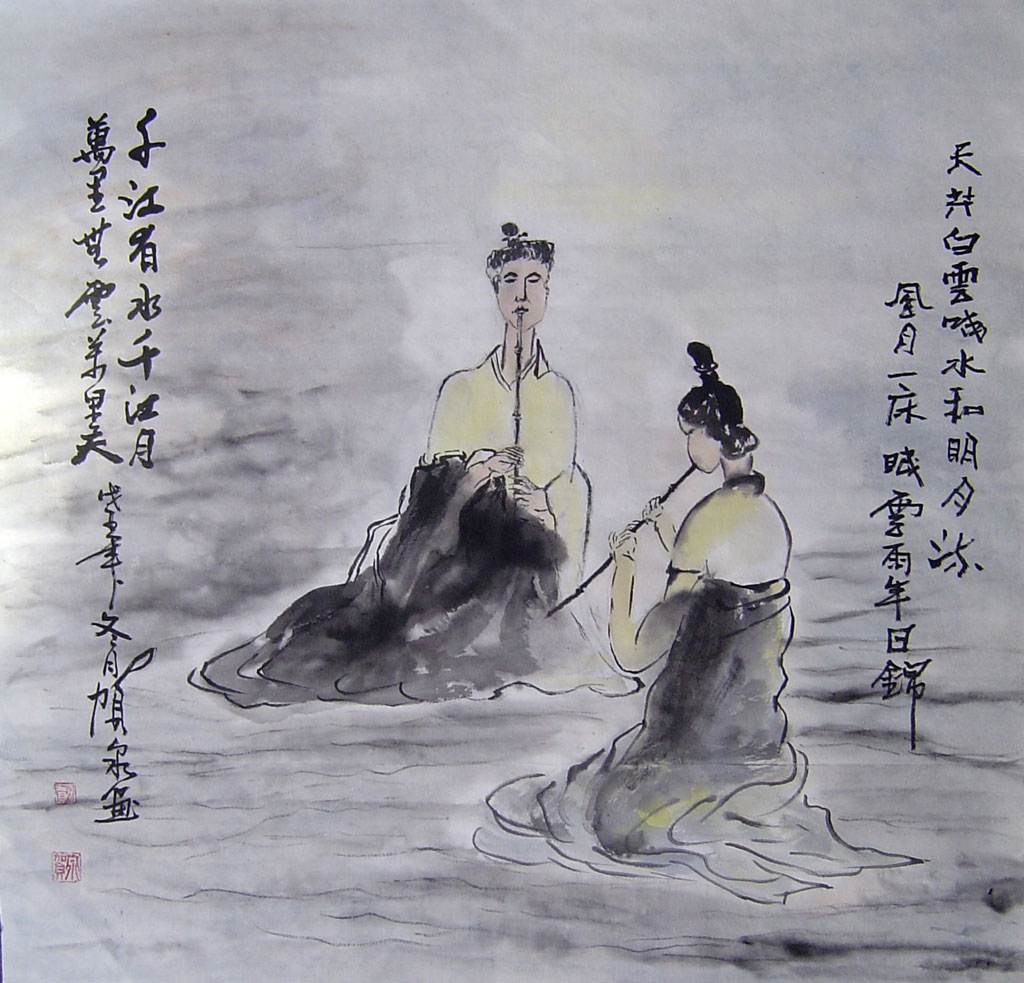 天共白雲曉水和明月流
風月一床 雲雨年日錦
千江有水千江月
萬里無雲萬里天
戊子年冬月賀泉畫